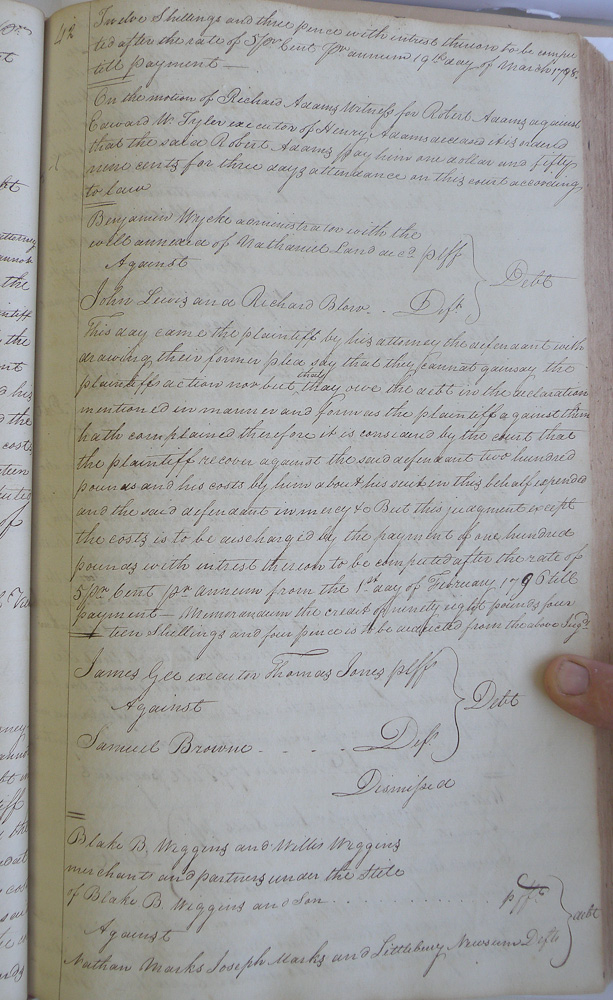 42
Twelve Shillings and three pence with intrest thereon to be compu
ted after the rate of 5 pr Cent pr annum 19th day of March 1798
till payment
On the motion of Richard Adams Witness for Robert Adams against
Edward W. Tyler executor of Henry Adams decd and it is orderd
that the said Robert Adams pay him one dollar and fifty
nine cents for three days attendance on this court according
to law
Benjamin Wyche administrator with the
will annexed of Nathaniel Land decd plff
Against
Debt
John Lewis and Richard Blow . . Deft
This day came the plaintiff by his attorney the defendant with
drawing their former plea say that they cannot gainsay the
plaintiffs action nor but they
truly
owe the debt in the declaration
mentioned in manner and form as the plaintiff against them
hath complained therefore it is considered by the court that
the plaintiff recover against the said defendant two hundred
pounds and his costs by him about his suit in this behalf expended
and the said defendant in mercy &c But this judgment except
the costs is to be discharged by the payment of one hundred
pounds with intrest thereon to be computed after the rate of
5 pr Cent pr annum from the 1st day of February 1796 till
payment — Memorandum the credit of ninety eight pounds four
teen Shillings and four pence is to be deducted from the above Jugt
James Gee executor Thomas Jones plff
Against
Debt
Samuel Browne . . . . Deft
Dismissed
Blake B. Wiggins and Willis Wiggins
merchants and partners under the Stile
of Blake B. Wiggins and Son . . . . . . . . . . plfts
Against
debt
Nathan Marks Joseph Marks and Littlebury Newsum Defts